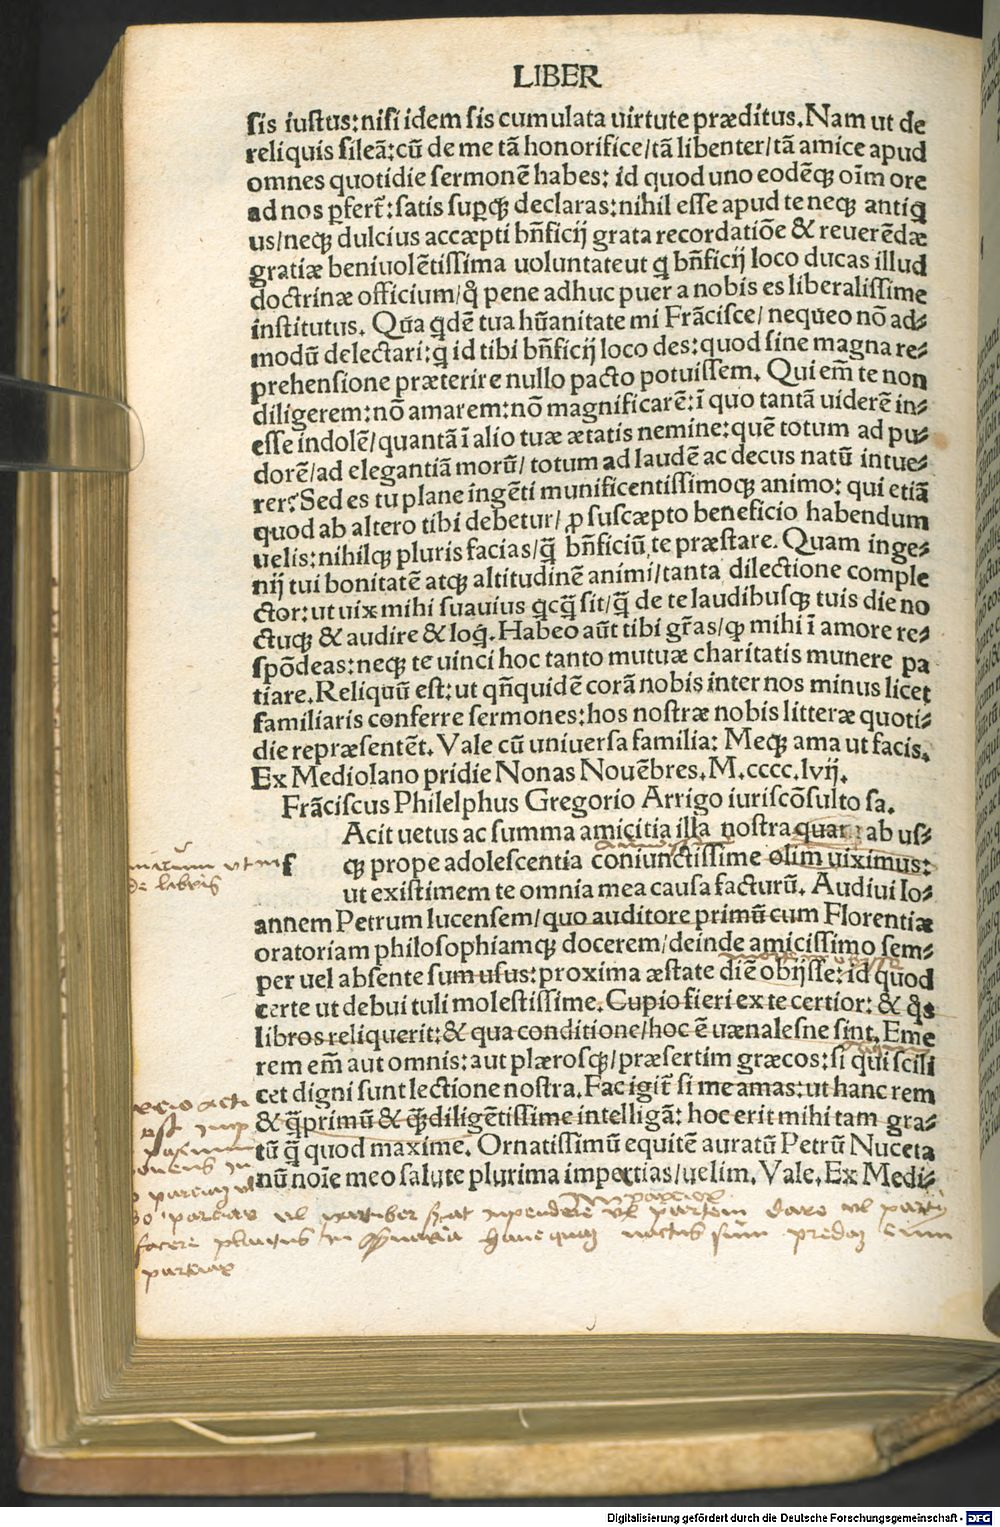 LIBER
sis iustus:nisi idem sis cumulata uirtute præditus.Nam ut de
reliquis sileã:cũ de me tã honorifice/tã libenter/tã amice apud
omnes quotidie sermonẽ habes: id quod uno eodẽqꝫ oĩm ore
ad nos ꝑfert̃:satis suꝑqꝫ declaras:nihil esse apud te neqꝫ antiq̃
us/neqꝫ dulcius accæpti bñficij grata recordatiõe & reuerẽdæ
gratiæ beniuolẽtissima uoluntate ut q̃ bñficij loco ducas illud
doctrinæ officium/q̊ pene adhuc puer a nobis es liberalissime
institutus. Qũa q̃dẽ tua hũanitate mi Frãcisce/ nequeo nõ ad⸗
modũ delectari:q̃ id tibi bñficij loco des:quod sine magna re⸗
prehensione præterire nullo pacto potuissem. Qui em̃ te non
diligerem:nõ amarem:nõ magnificarẽ:ĩ quo tantã uiderẽ in⸗
esse indolẽ/quantã ĩ alio tuæ ætatis nemine:quẽ totum ad pu⸗
dorẽ/ad elegantiã morũ/ totum ad laudẽ ac decus natũ intue⸗
rer?Sed es tu plane ingẽti munificentissimoqꝫ animo: qui etiã
quod ab altero tibi debetur/ ꝓ suscæpto beneficio habendum
uelis:nihilqꝫ pluris facias/q̃ bñficiũ te præstare. Quam inge⸗
nij tui bonitatẽ atqꝫ altitudinẽ animi/tanta dilectione comple
ctor:ut uix mihi suauius q̃cq̃ sit/q̃ de te laudibusqꝫ tuis die no
ctuqꝫ & audire & loq̃. Habeo aũt tibi gr̃as/ꝙ mihi ĩ amore re⸗
spõdeas:neqꝫ te uinci hoc tanto mutuæ charitatis munere pa
tiare.Reliquũ est:ut qñquidẽ corã nobis inter nos minus licet
familiaris conferre sermones:hos nostræ nobis litteræ quoti⸗
die repræsentẽt. Vale cũ uniuersa familia: Meqꝫ ama ut facis.
Ex Mediolano pridie Nonas Nouẽbres.M.cccc.lvij.
Frãciscus Philelphus Gregorio Arrigo iuriscõsulto sa.
Acit uetus ac summa amicitia illa nostra quam ab us⸗
f qꝫ prope adolescentia coniunctissime olim uiximus:
ut existimem te omnia mea causa facturũ. Audiui Io⸗
annem Petrum lucensem/quo auditore primũ cum Florentiæ
oratoriam philosophiamqꝫ docerem/deinde amicissimo sem⸗
per uel absente sum usus:proxima æstate diẽ obijsse:id quod
certe ut debui tuli molestissime.Cupio fieri ex te certior: & q̊s
libros reliquerit:& qua conditione/hoc ẽ uænalesne sint.Eme
rem em̃ aut omnis:aut plærosqꝫ/præsertim græcos:si qui scili
cet digni sunt lectione nostra.Fac igit̃ si me amas:ut hanc rem
& q̃primũ & q̃diligẽtissime intelligã: hoc erit mihi tam gra⸗
tũ q̃ quod maxime. Ornatissimũ equitẽ auratũ Petrũ Nuceta
nũ noĩe meo salute plurima impertias/uelim. Vale.Ex Medi⸗
de libris
Digitalisierung gefördert durch die Deutsche Forschungsgemeinschaft - DFG